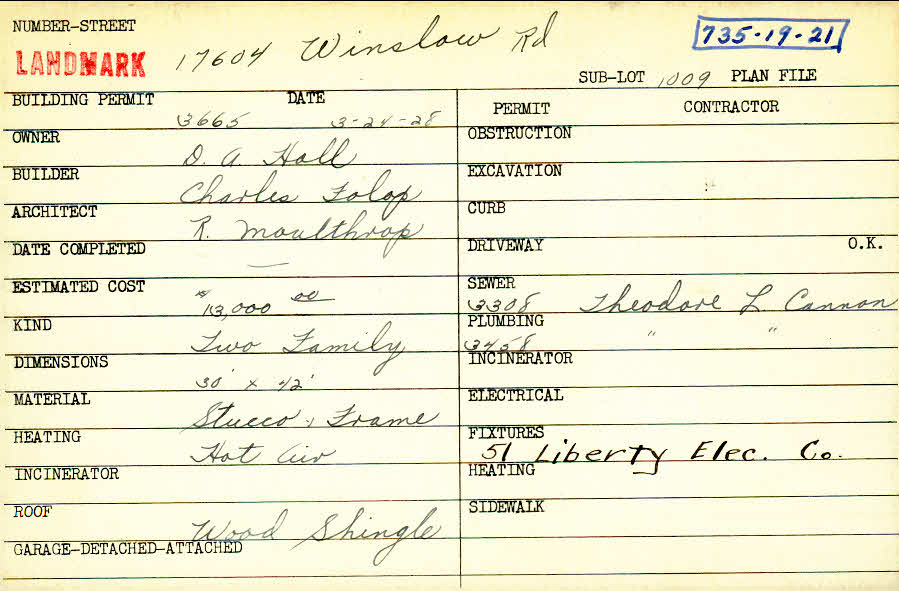 NUMBER-STREET 17604 Winslow Rd 735-19-21
LANDMARK
SUB-LOT 1009 PLAN FILE
BUILDING PERMIT DATE
3665 3-24-28
OWNER
D. A. Hall
BUILDER
Charles Folop
ARCHITECT
R. Moulthrop
DATE COMPLETED
—
ESTIMATED COST
$13,000 00
KIND
Two Family
DIMENSIONS
30' x 42'
MATERIAL
Stucco & Frame
HEATING
Hot Air
INCINERATOR
ROOF
Wood Shingle
GARAGE-DETACHED-ATTACHED
PERMIT CONTRACTOR
OBSTRUCTION
EXCAVATION
CURB
DRIVEWAY O.K.
SEWER
3308 Theodore L Cannon
PLUMBING
3458 " "
INCINERATOR
ELECTRICAL
FIXTURES
51 Liberty Elec. Co.
HEATING
SIDEWALK